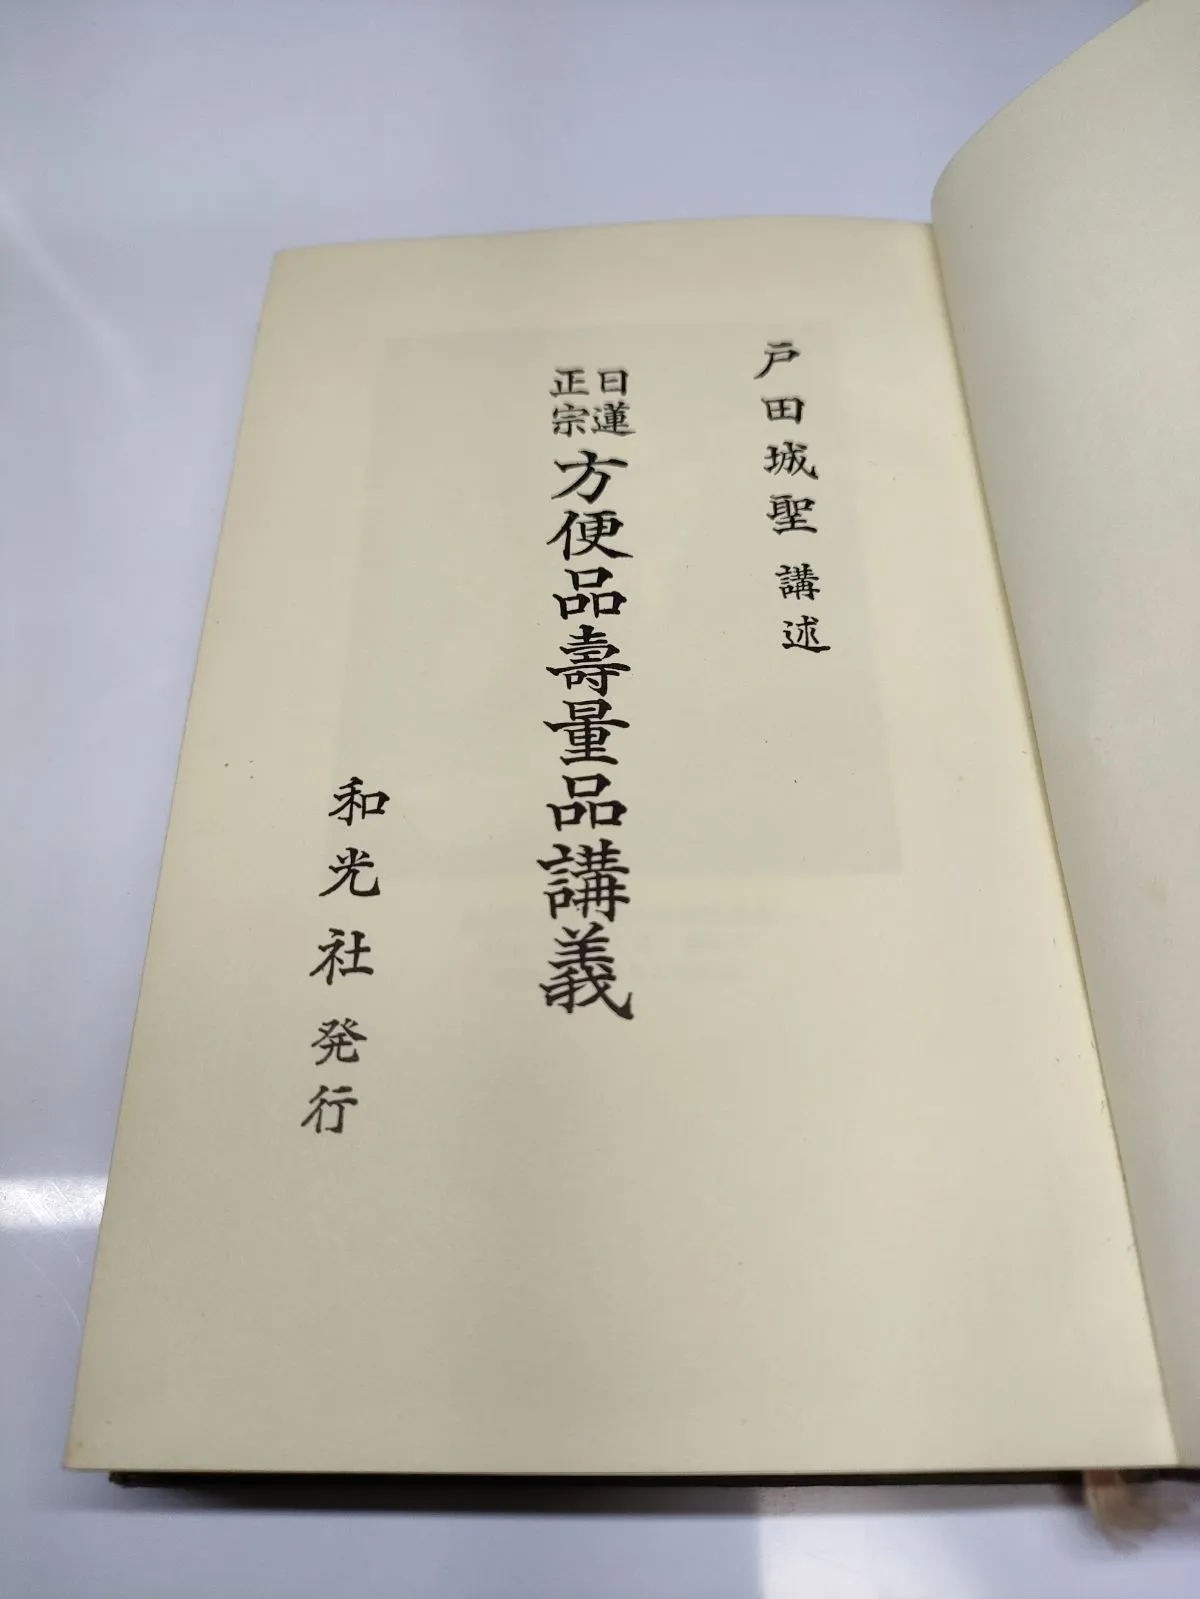 戸田城聖 講述
日蓮正宗 方便品壽量品講義
和光社 発行